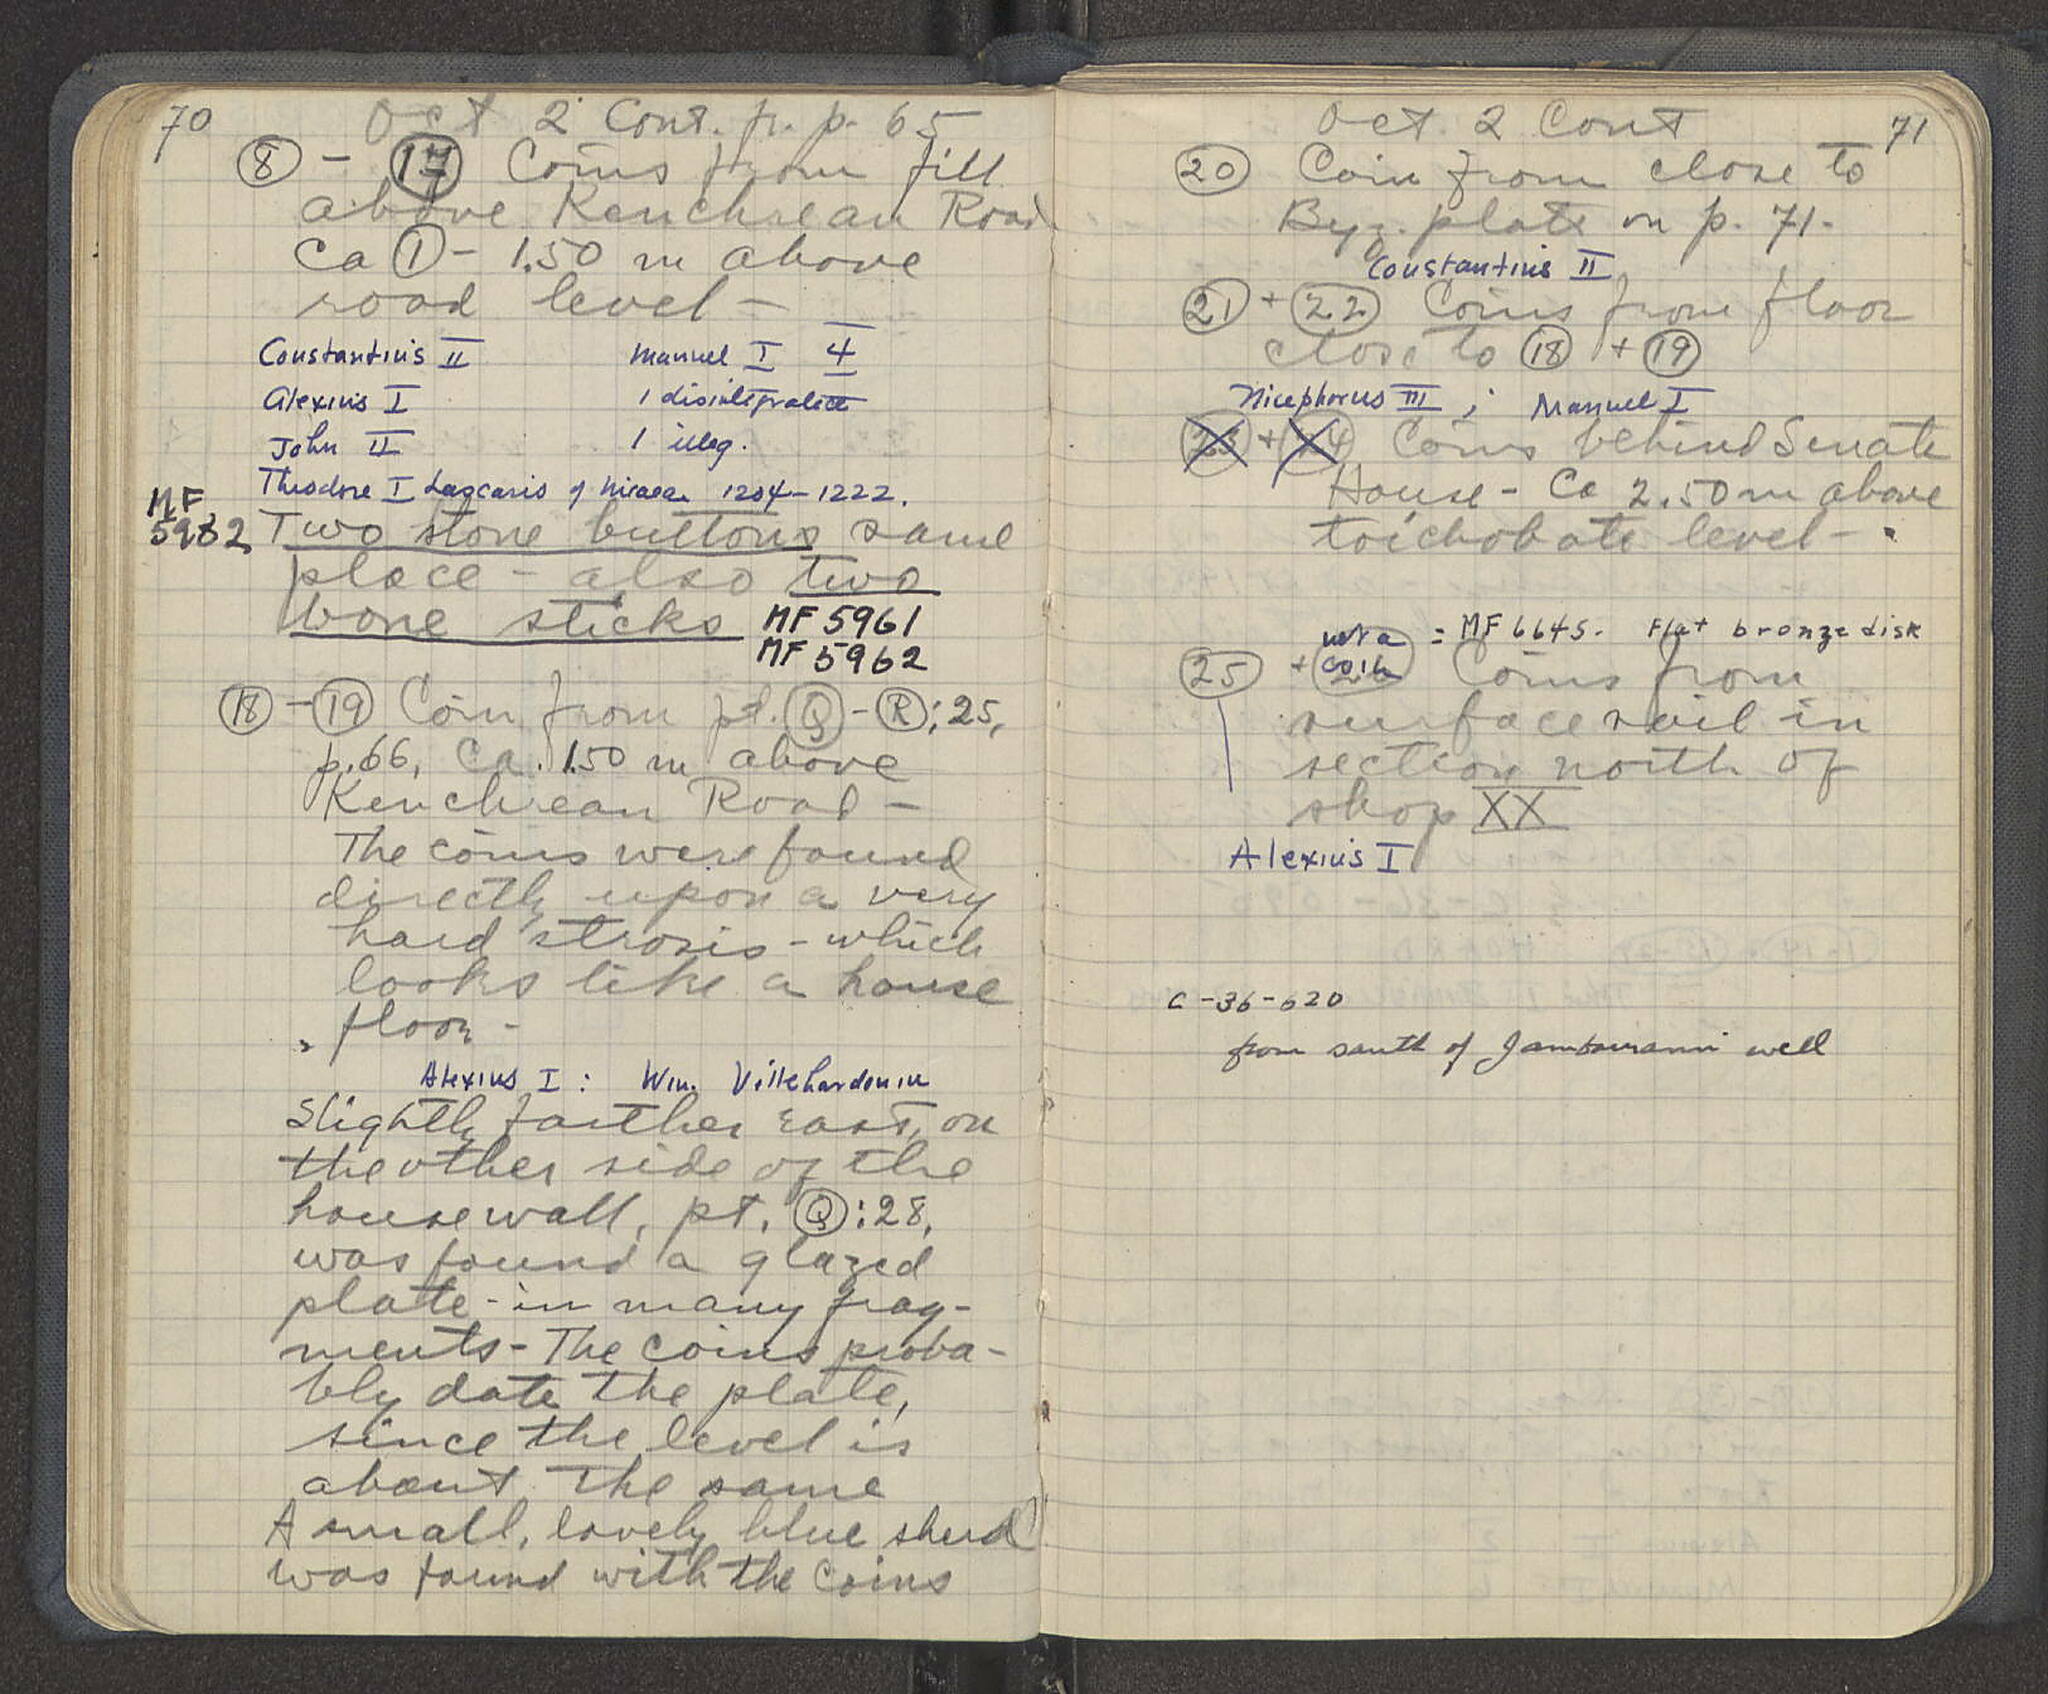 70
Oct 2 Cont. fr. p. 65
8 - 17 Coins from fill
above Kenchrean Road
Ca 1 - 1.50 m above
road level -
Constantius II Manuel I 4
Alexius I 1 disintegrated
John II 1 illeg.
Theodore I Lascaris of Nicaea 1204-1222.
MF
Two stone buttons same
place - also two
bone sticks MF 5961
MF 5962
18 - 19 Coin from pt. Q - R : 25,
p. 66, Ca. 1.50 m above
Kenchrean Road -
The coins were found
directly upon a very
hard strosis - which
looks like a house
floor -
Alexius I : Wm. Villehardouin
Slightly farther east, on
the other side of the
house wall, pt. Q : 28,
was found a glazed
plate - in many frag-
ments - The coins proba-
bly date the plate,
since the level is
about the same
A small, lovely blue sherd
was found with the coins
71
Oct. 2 Cont
20 Coin from close to
Byz. plate on p. 71.
Constantius II
21 + 22 Coins from floor
close to 18 + 19
Nicephorus III ; Manuel I
23 + 24 Coins behind Senate
House - Ca 2.50 m above
toichobate level -
not a = MF 6645. Flat bronze disk
25 + coin Coins from
surface soil in
section north of
shop XX
Alexius I
C-36-620
from south of well